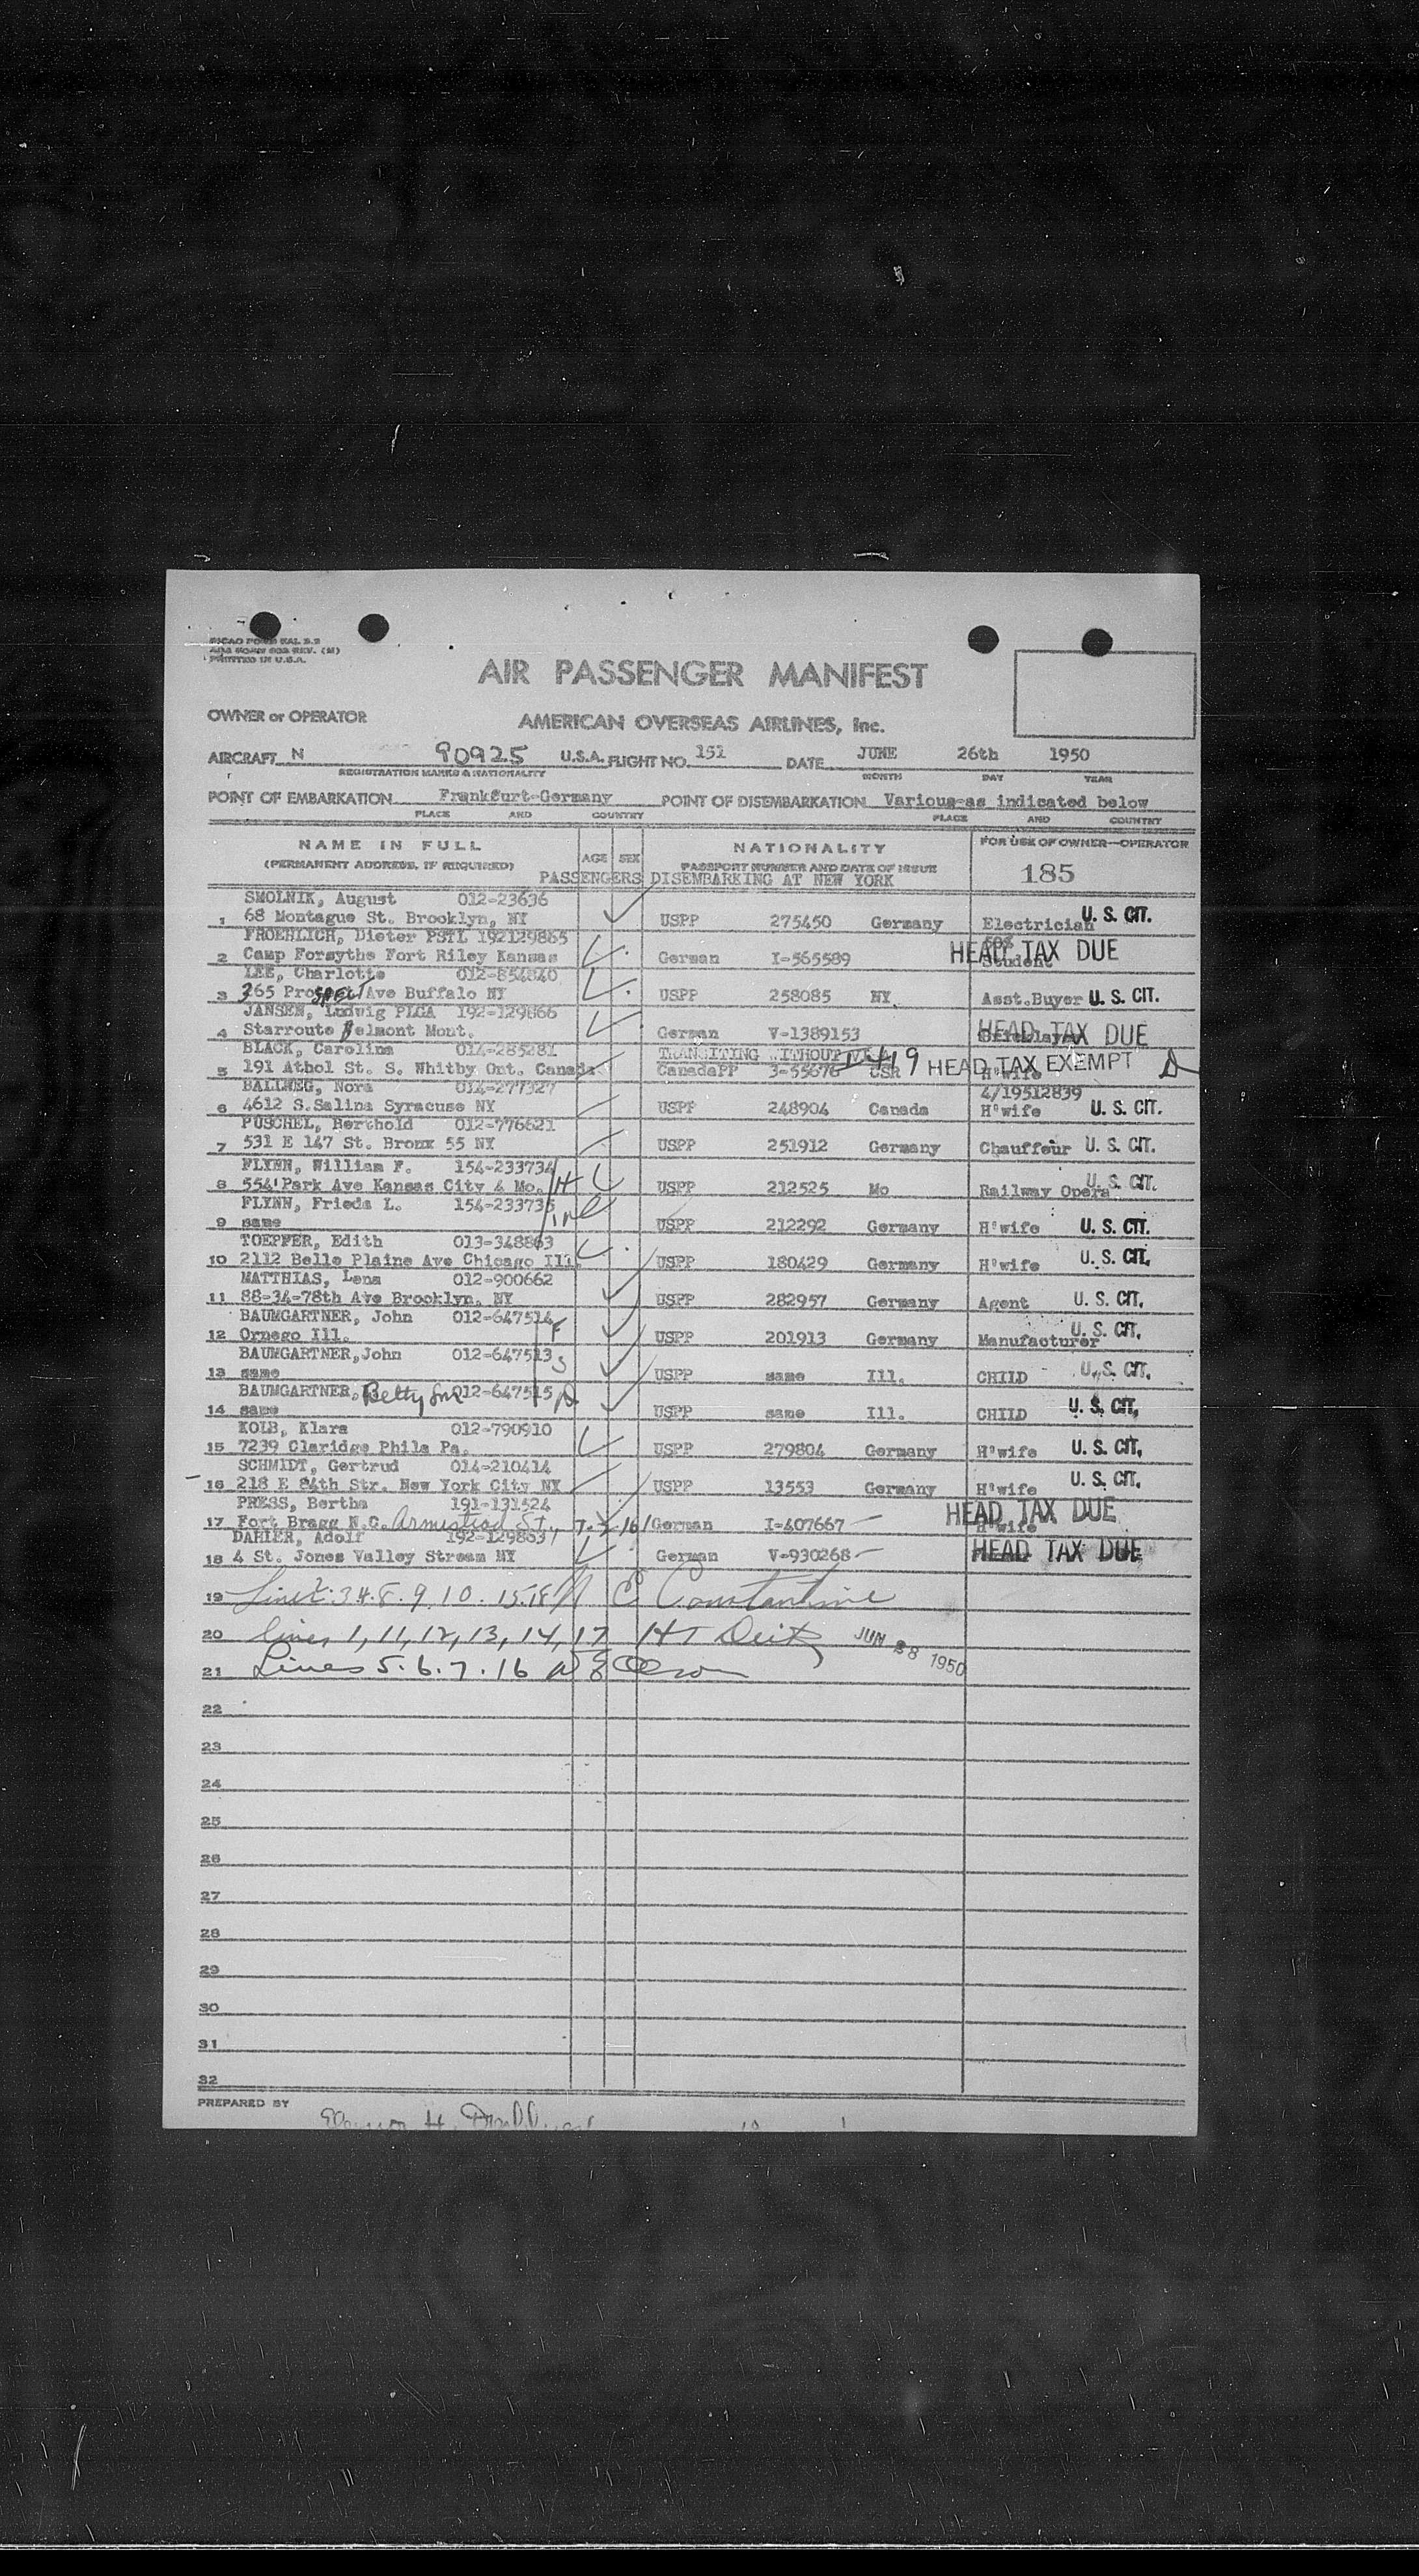 PICAO FORM GAL 2.2
PRINTED IN U.S.A.
AIR PASSENGER MANIFEST
OWNER or OPERATOR
AMERICAN OVERSEAS AIRLINES, Inc.
AIRCRAFT N 90925 U.S.A. FLIGHT NO. 151 DATE JUNE 26th 1950
REGISTRATION MARKS & NATIONALITY MONTH DAY YEAR
POINT OF EMBARKATION Frankfurt-Germany POINT OF DISEMBARKATION Various-as indicated below
PLACE AND COUNTRY PLACE AND COUNTRY
NAME IN FULL AGE SEX NATIONALITY FOR USE OF OWNER—OPERATOR
(PERMANENT ADDRESS, IF REQUIRED) PASSPORT NUMBER AND DATE OF ISSUE 185
PASSENGERS DISEMBARKING AT NEW YORK
SMOLNIK, August 012-23636
1 68 Montague St. Brooklyn, NY USPP 275450 Germany Electrician U. S. CIT.
FROEHLICH, Dieter PSTL 192129865
2 Camp Forsythe Fort Riley Kansas German I-565589 Student HEAD TAX DUE
LEE, Charlotte 012-854840
3 265 Prospect Ave Buffalo NY USPP 258085 NY Asst.Buyer U. S. CIT.
JANSEN, Ludwig PLGA 192-129866
4 Starroute Belmont Mont. German V-1389153 HEAD TAX DUE
BLACK, Carolina 014-285281 TRANSITING WITHOUT
5 191 Athol St. S. Whitby Ont. Canada CanadaPP 3-55676 USR H'wife HEAD TAX EXEMPT
BALLWEG, Nora 014-277327 4/19512839
6 4612 S.Salina Syracuse NY USPP 248904 Canada H'wife U. S. CIT.
PUSCHEL, Berthold 012-776621
7 531 E 147 St. Bronx 55 NY USPP 251912 Germany Chauffeur U. S. CIT.
FLYNN, William F. 154-233734 H
8 554 Park Ave Kansas City 4 Mo. USPP 212525 Mo Railway Opera U. S. CIT.
FLYNN, Frieda L. 154-233735
9 same USPP 212292 Germany H'wife U. S. CIT.
TOEPFER, Edith 013-348863
10 2112 Belle Plaine Ave Chicago Ill. USPP 180429 Germany H'wife U. S. CIT.
MATTHIAS, Lena 012-900662
11 88-34-78th Ave Brooklyn, NY USPP 282957 Germany Agent U. S. CIT.
BAUMGARTNER, John 012-647514 F
12 Ornego Ill. USPP 201913 Germany Manufacturer U. S. CIT.
BAUMGARTNER,John 012-647513 S
13 same USPP same Ill. CHILD U. S. CIT.
BAUMGARTNER, Betty 012-647515 D
14 same USPP same Ill. CHILD U. S. CIT.
KOLB, Klara 012-790910
15 7239 Claridge Phila Pa. USPP 279804 Germany H'wife U. S. CIT.
SCHMIDT, Gertrud 014-210414
16 218 E 84th Str. New York City NY USPP 13553 Germany H'wife U. S. CIT.
PRESS, Bertha 191-131524
17 Fort Bragg N.C. Armistead St. German I-407667 H'wife HEAD TAX DUE
DAHLER, Adolf 192-129863
18 4 St. Jones Valley Stream NY German V-930268 HEAD TAX DUE
19 Constantine
20 Lines 1, 11, 12, 13, 14, 17 JUN 28 1950
21 Lines 5. 6. 7. 16
22
23
24
25
26
27
28
29
30
31
32
PREPARED BY